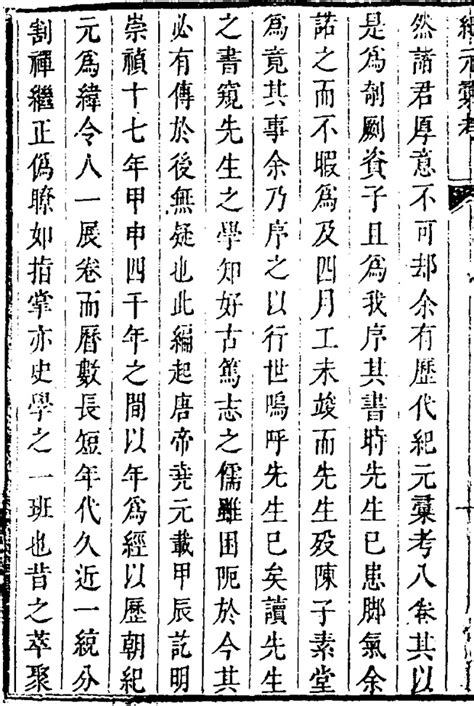 紀元彙考
然諸君厚意不可却余有歷代紀元彙考八卷其以
是爲剞劂資子且爲我序其書時先生已患脚氣余
諾之而不暇爲及四月工未竣而先生歿陳子素堂
爲竟其事余乃序之以行世嗚呼先生已矣讀先生
之書窺先生之學知好古篤志之儒雖困阨於今其
必有傳於後無疑也此編起唐帝堯元載甲辰訖明
崇禎十七年甲申四千年之間以年爲經以歷朝紀
元爲緯令人一展卷而曆數長短年代久近一統分
割禪繼正僞瞭如指掌亦史學之一班也昔之萃聚